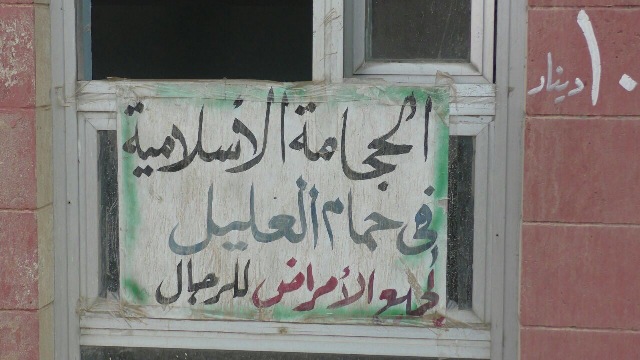 الحجامة الأسلامية
في حمام العليل
لجميع الأمراض للرجال
١٠ دينار